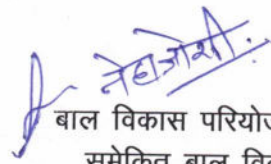 नेहा जोशी
बाल विकास परियोज
समेकित बाल वि